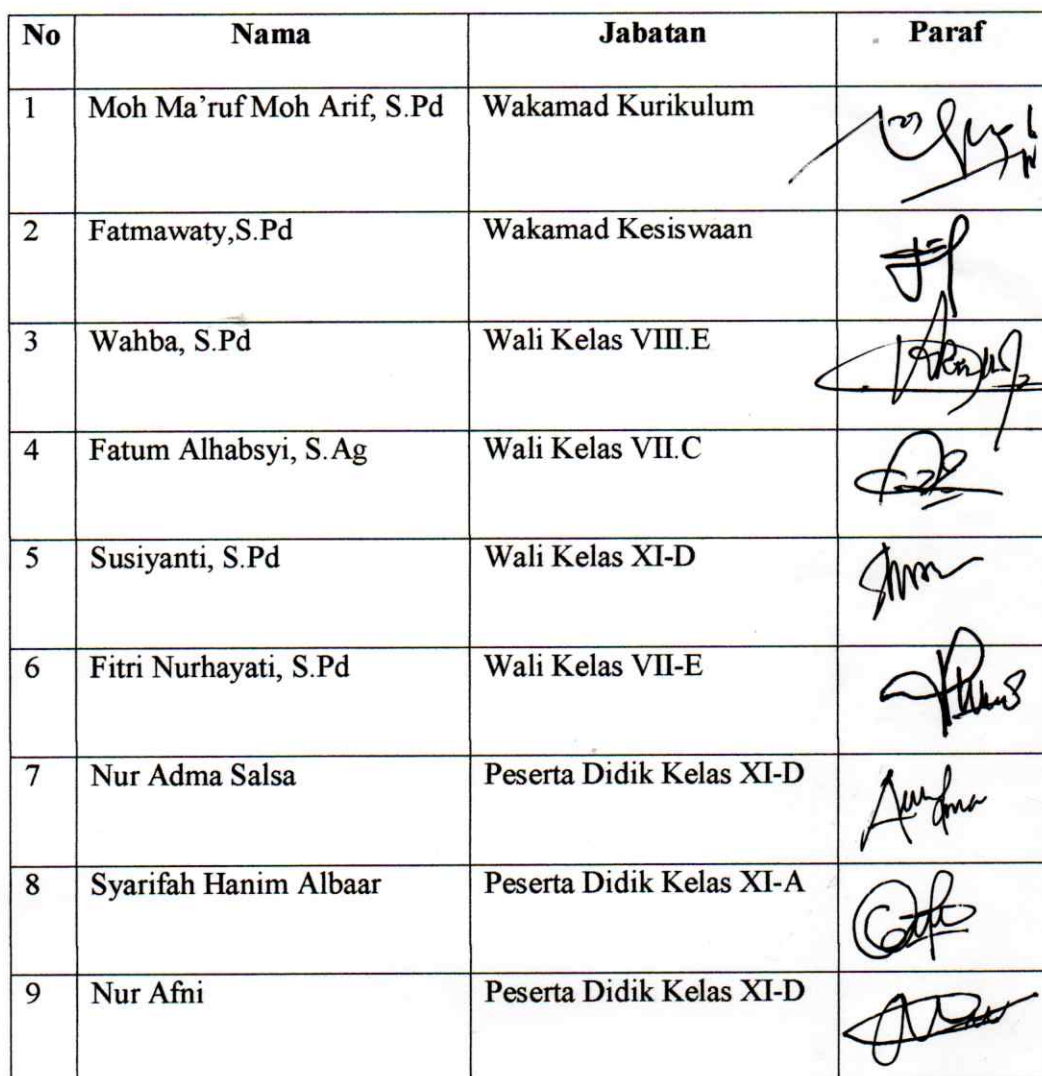 No Nama Jabatan Paraf
1 Moh Ma'ruf Moh Arif, S.Pd Wakamad Kurikulum
2 Fatmawaty,S.Pd Wakamad Kesiswaan
3 Wahba, S.Pd Wali Kelas VIII.E
4 Fatum Alhabsyi, S.Ag Wali Kelas VII.C
5 Susiyanti, S.Pd Wali Kelas XI-D
6 Fitri Nurhayati, S.Pd Wali Kelas VII-E
7 Nur Adma Salsa Peserta Didik Kelas XI-D
8 Syarifah Hanim Albaar Peserta Didik Kelas XI-A
9 Nur Afni Peserta Didik Kelas XI-D